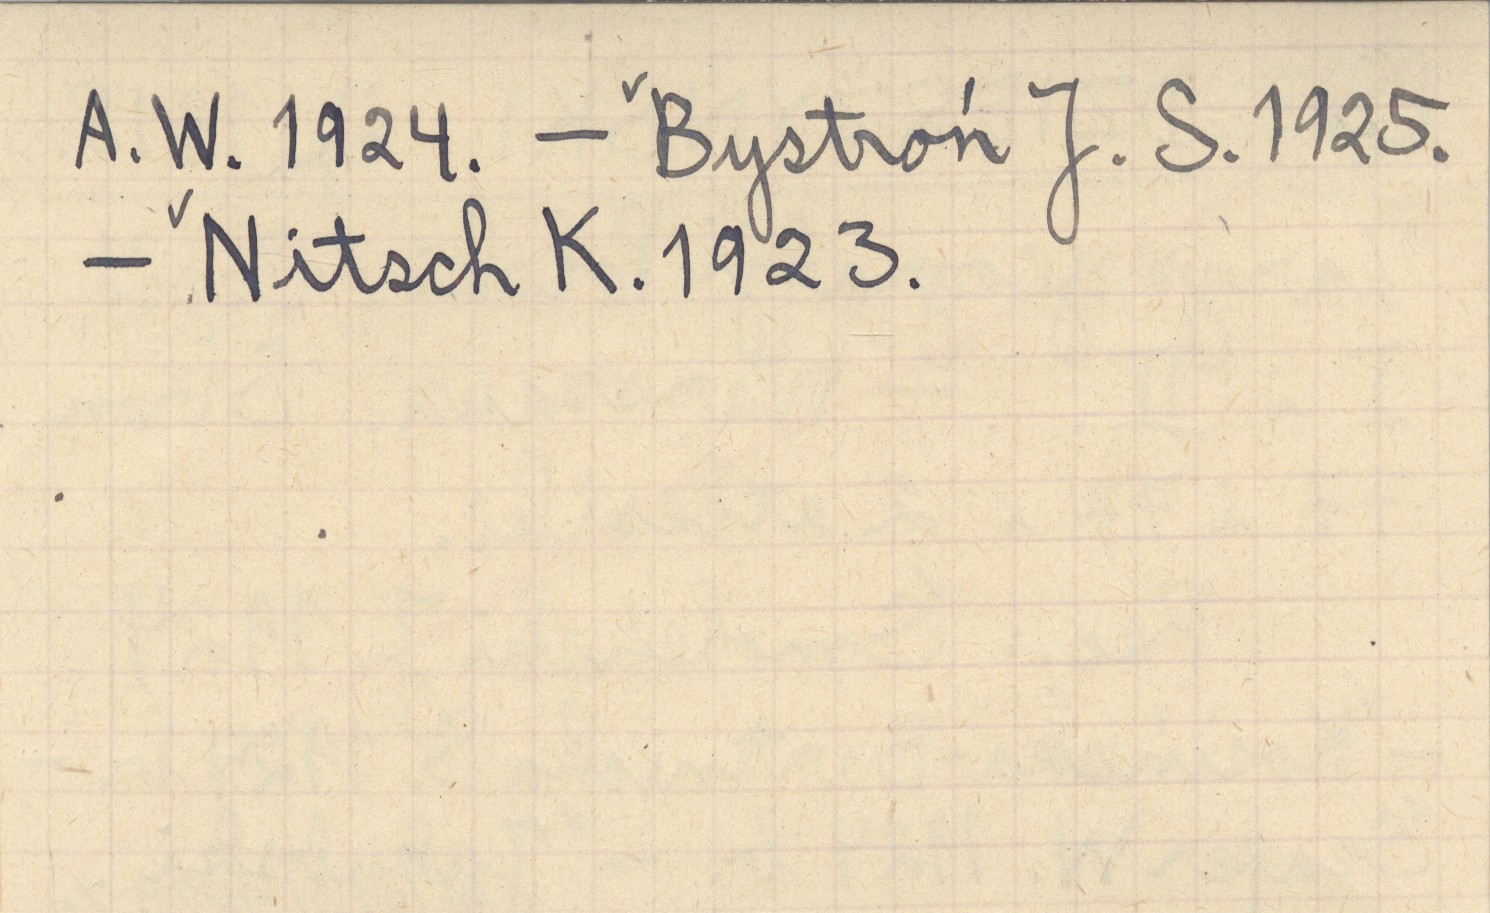 A. W. 1924. – ✓Bystroń J. S. 1925.
– ✓Nitsch K. 1923.